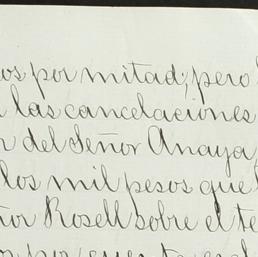 os por mitad; pero
las cancelaciones
del Señor Anaya,
los mil pesos que
ñor Rosell sobre el te